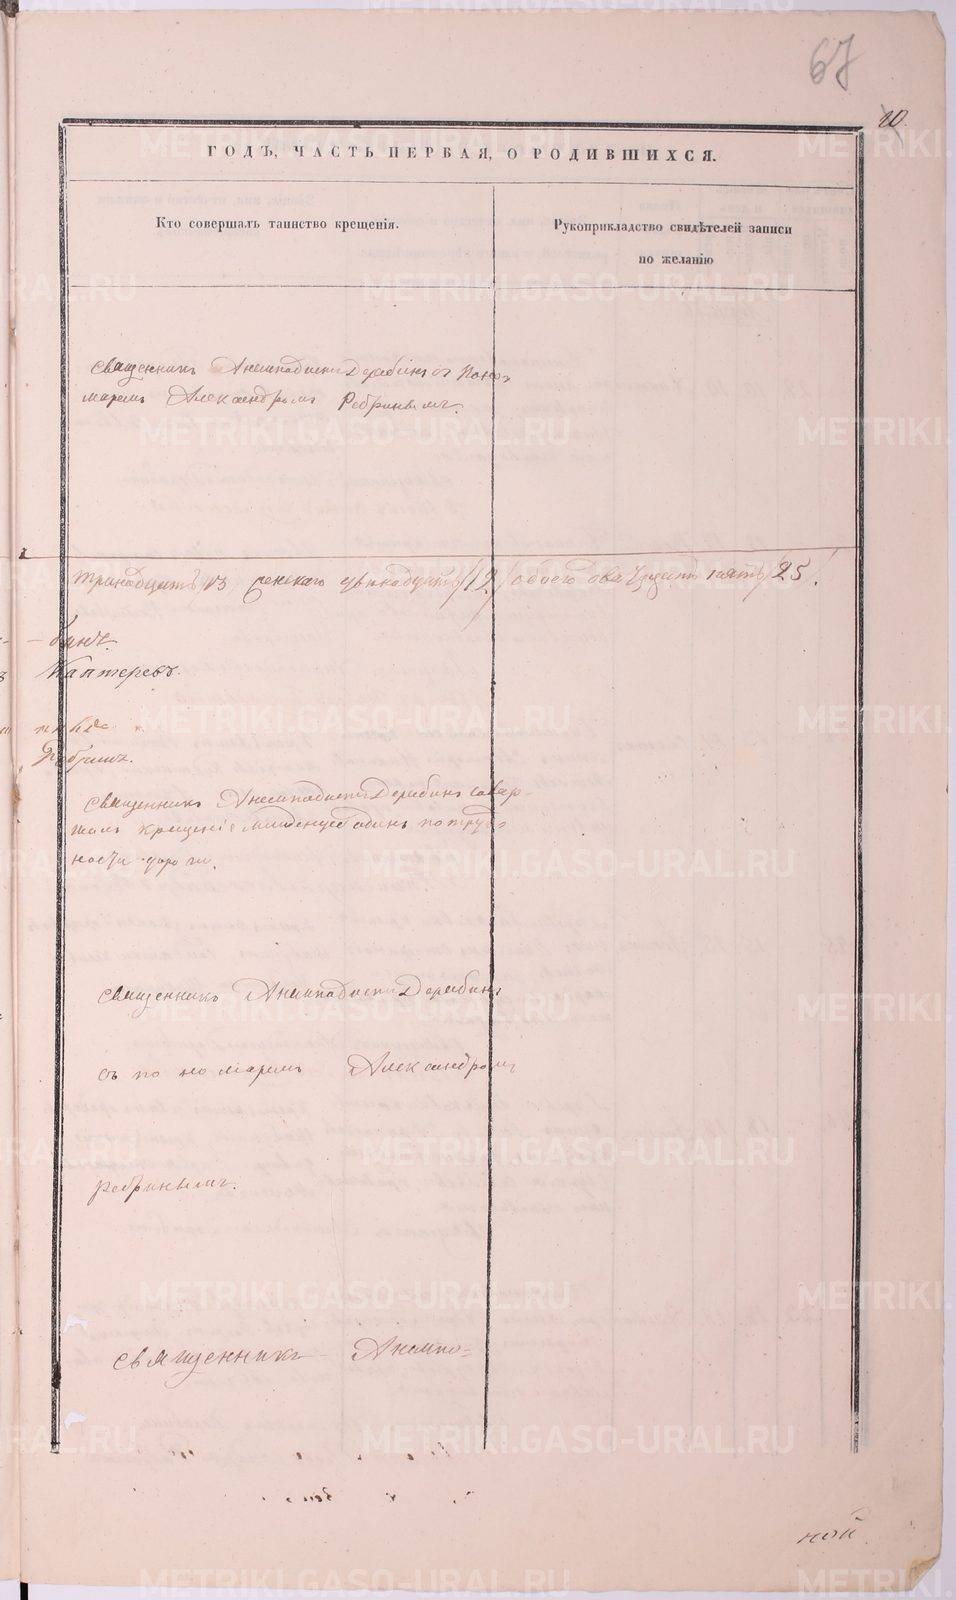 67
10.
ГОДЪ, ЧАСТЬ ПЕРВАЯ, О РОДИВШИХСЯ.
Кто совершалъ таинство крещенія.
Рукоприкладство свидѣтелей записи
по желанію
Священникъ Анемподистъ Дерябинъ съ Поно-
маремъ Александромъ Ребринымъ.
тринадцать 13 женскаго двенадцать /12/ обоего двадцать пять /25/.
бинъ.
Каптеревъ.
Ребринъ.
Священникъ Анемподистъ Дерябинъ совер-
шалъ крещеніе младенцев одинъ по трудо
ности дороги.
Священникъ Анемподистъ Дерябинъ
съ пономаремъ Александромъ
Ребринымъ.
Священникъ Анемпо-
ной
METRIKI.GASO-URAL.RU